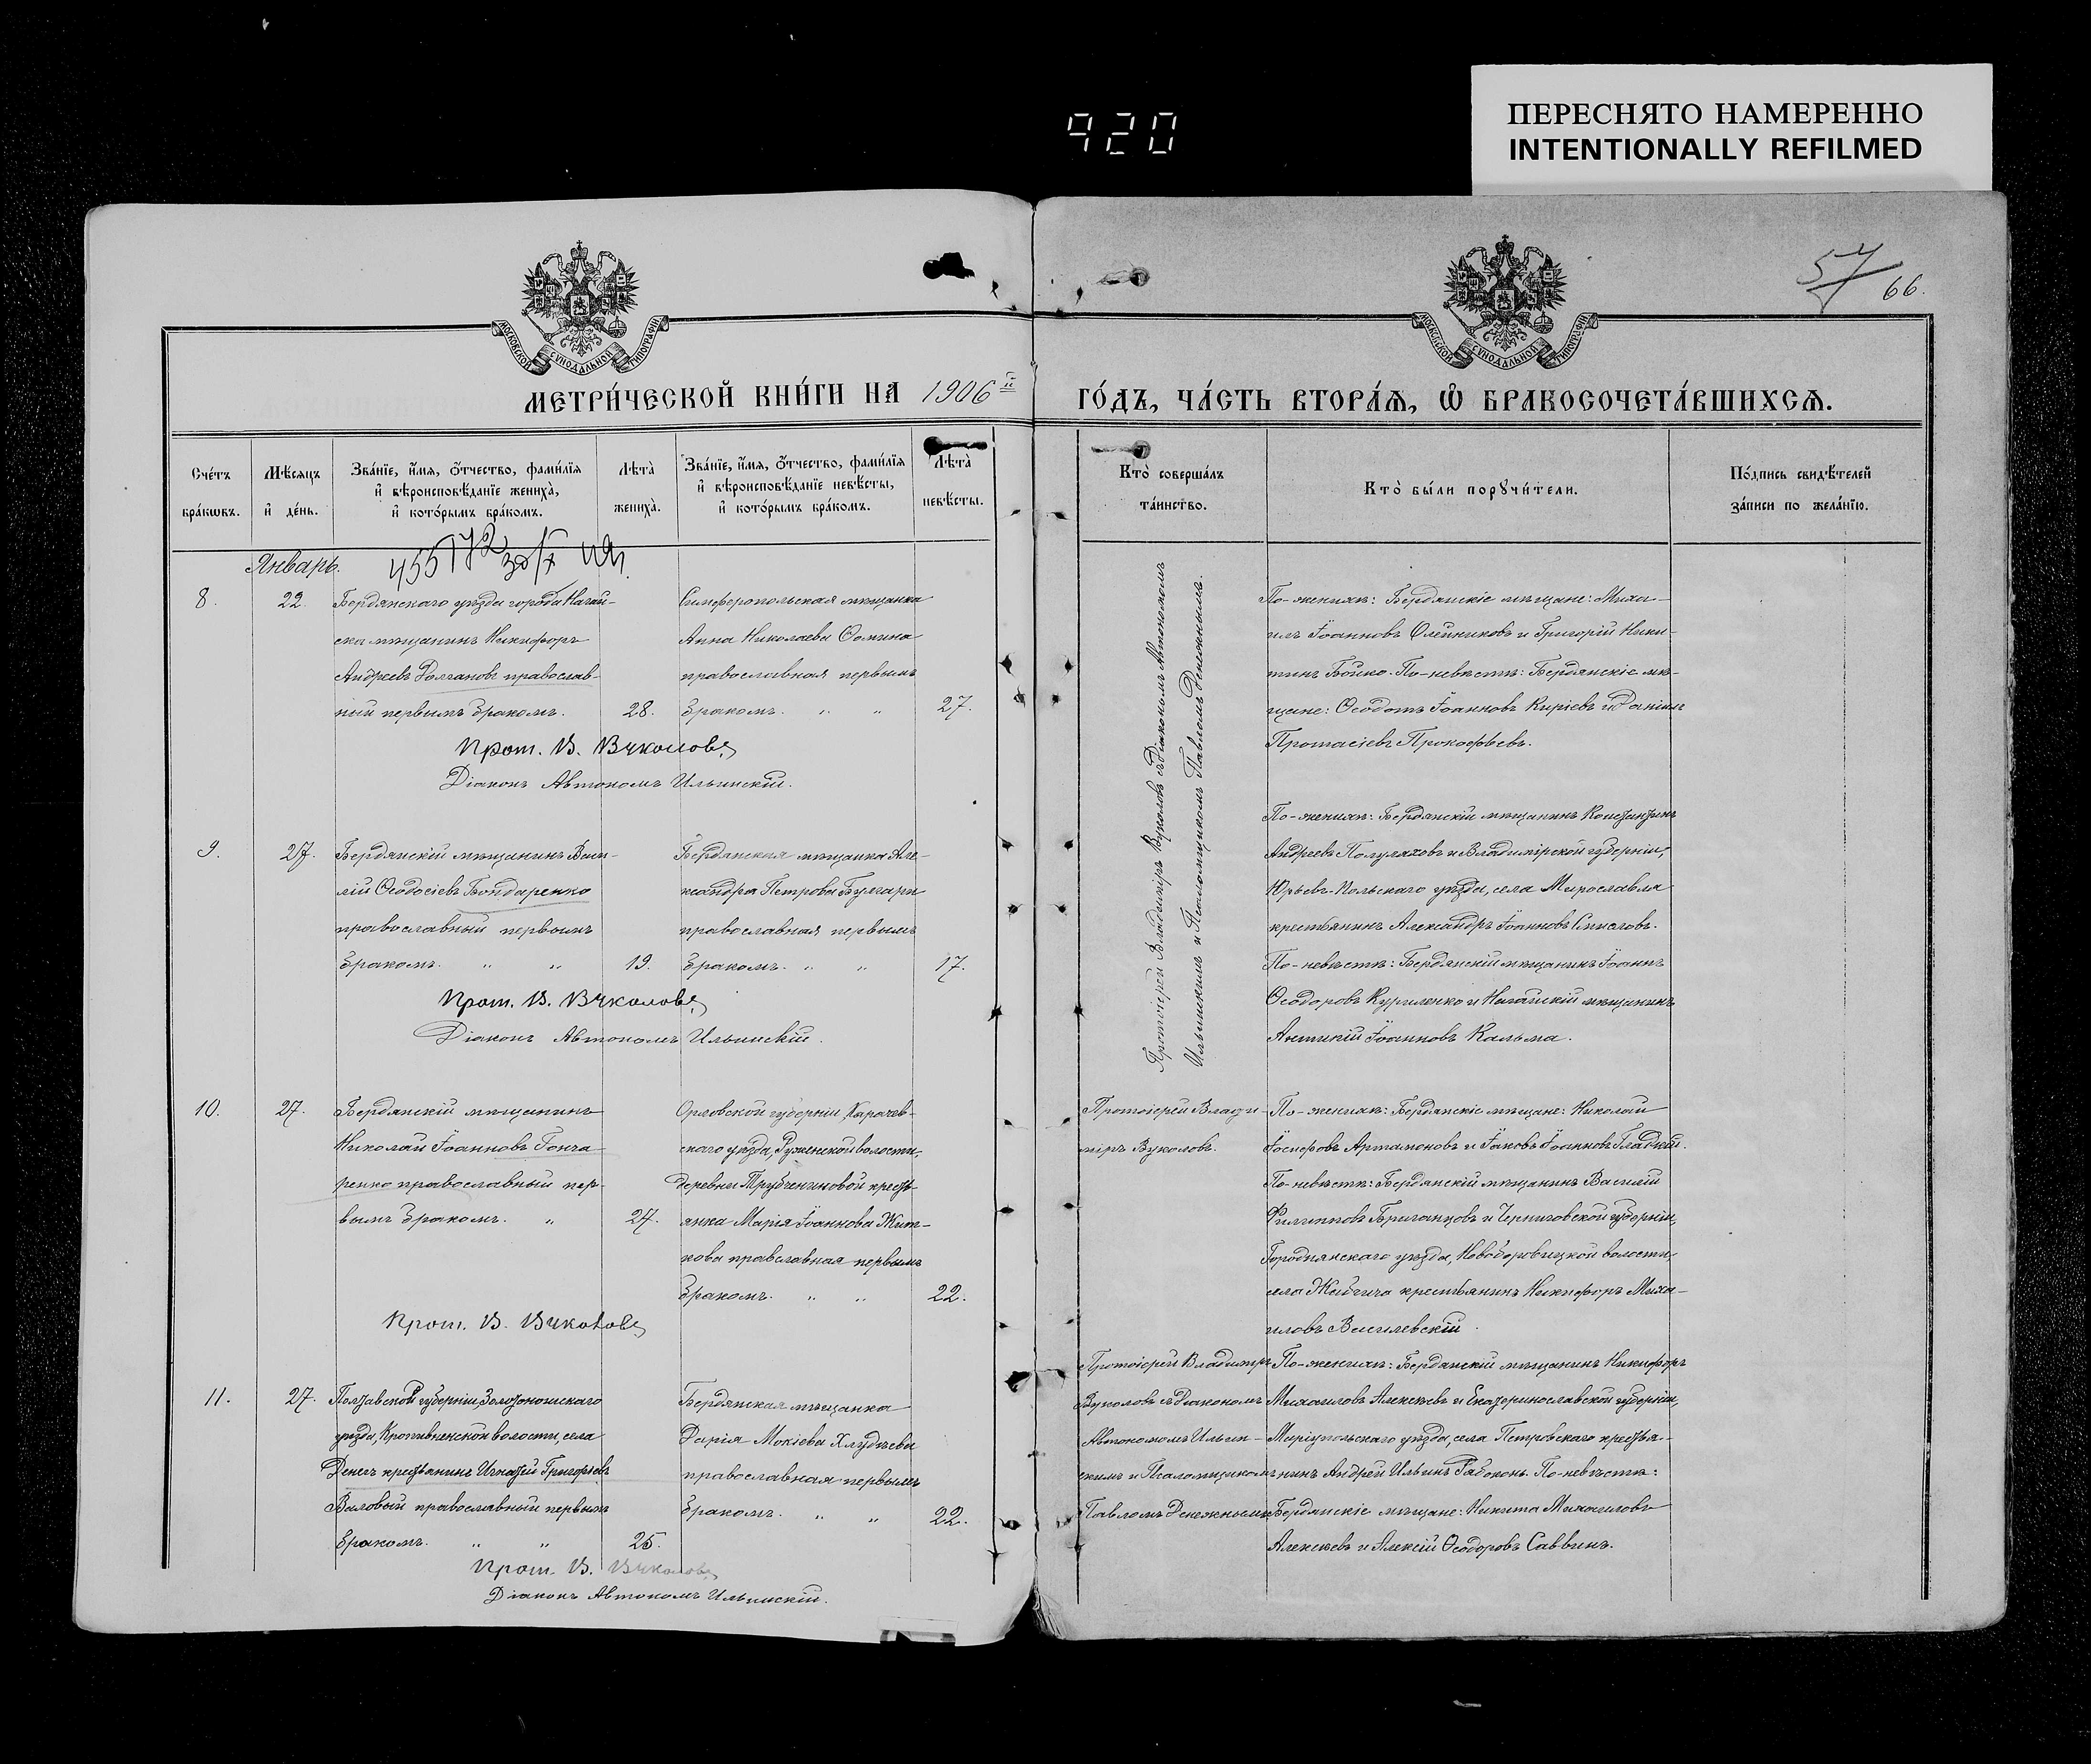 920
ПЕРЕСНЯТО НАМЕРЕННО
INTENTIONALLY REFILMED
57
66.
МОСКОВСКОЙ СѴНОДАЛЬНОЙ ТИПОГРАФІИ
МОСКОВСКОЙ СѴНОДАЛЬНОЙ ТИПОГРАФІИ
МЕТРИ́ЧЕСКОЙ КНИ́ГИ НА 1906й
ГО́ДЪ, ЧА́СТЬ ВТОРА́Ѧ, Ѡ҆ БРАКОСОЧЕТА́ВШИХСѦ.
Сче́тъ бра́кѡвъ.
Мѣ́сяцъ и҆ де́нь.
Зва́нїе, и҆́мя, ѻ҆́тчество, фами́лїя
и҆ вѣроисповѣ́данїе жениха̀,
и҆ кото́рымъ бра́комъ.
Лѣта̀ жениха̀.
Зва́нїе, и҆́мя, ѻ҆́тчество, фами́лїя
и҆ вѣроисповѣ́данїе невѣ́сты,
и҆ кото́рымъ бра́комъ.
Лѣта̀ невѣ́сты.
Кто̀ соверша́лъ та́инство.
Кто̀ бы́ли порꙋчи́тели.
По́дпись свидѣ́телей за́писи по жела́нїю.
Январь.
8.
22.
Бердянскаго уѣзда города Нагай-
ска мѣщанинъ Никифоръ
Андреевъ Долгановъ православ-
ный первымъ бракомъ.
28.
Симферопольская мѣщанка
Анна Николаева Ѳомина
православная первымъ
бракомъ. " "
27.
Прот. В. Вуколовъ
Діаконъ Автономъ Ильинскій.
Протоіерей Владиміръ Вуколовъ съ Діакономъ Автономомъ
Ильинскимъ и Псаломщикомъ Павломъ Денежнымъ.
По-женихѣ: Бердянскіе мѣщане: Миха-
илъ Іоанновъ Олейниковъ и Григорій Ники-
тинъ Бойко. По-невѣстѣ: Бердянскіе мѣ-
щане: Ѳеодотъ Іоанновъ Киріевъ и Даніилъ
Протасіевъ Прокофьевъ.
9.
27.
Бердянскій мѣщанинъ Васи-
лій Ѳеодосіевъ Бондаренко
православный первымъ
бракомъ. " "
19.
Бердянская мѣщанка Але-
ксандра Петрова Булгари
православная первымъ
бракомъ. " "
17.
Прот. В. Вуколовъ
Діаконъ Автономъ Ильинскій.
По-женихѣ: Бердянскій мѣщанинъ Константинъ
Андреевъ Полулаховъ и Владимірской губерніи,
Юрьевъ-Польскаго уѣзда, села Мирославля
крестьянинъ Александръ Іоанновъ Смысловъ.
По-невѣстѣ: Бердянскій мѣщанинъ Іоаннъ
Ѳеодоровъ Куриленко и Нагайскій мѣщанинъ
Іоанновъ Кальма.
10.
27.
Бердянскій мѣщанинъ
Николай Іоанновъ Гонча
ренко православный пер-
вымъ бракомъ. "
27.
Орловской губерніи, Карачев-
скаго уѣзда, Руженской волости,
деревни Трубчениновой кресть-
янка Марія Іоаннова Жит-
кова православная первымъ
бракомъ. " "
22.
Прот. В. Вуколовъ
Протоіерей Влади-
міръ Вуколовъ.
По-женихѣ: Бердянскіе мѣщане: Николай
Іосифовъ Артамоновъ и Іаковъ Іоанновъ Гладкій.
По-невѣстѣ: Бердянскій мѣщанинъ Василій
Филипповъ Брилановъ и Черниговской губерніи,
Городнянскаго уѣзда, Новоборовицкой волости,
села крестьянинъ Никифоръ Миха-
иловъ Василевскій.
11.
27.
Полтавской губерніи, Золотоношскаго
уѣзда, Кропивненской волости, села
Денегъ крестьянинъ Игнатій Григорьевъ
Валовый православный первымъ
бракомъ. " "
25.
Бердянская мѣщанка
Дарія Мокіева Хлудѣева
православная первымъ
бракомъ. " "
22.
Прот. В. Вуколовъ
Діаконъ Автономъ Ильинскій.
Протоіерей Владиміръ
Вуколовъ съ Діакономъ
Автономомъ Ильин-
скимъ и Псаломщикомъ
Павломъ Денежнымъ
По-женихѣ: Бердянскій мѣщанинъ Никифоръ
Михаиловъ Алексѣевъ и Екатеринославской губерніи,
Маріупольскаго уѣзда, села Петровскаго крестья-
нинъ Андрей Ильинъ Габоконь. По-невѣстѣ:
Бердянскіе мѣщане: Никита Михаиловъ
Алексѣевъ и Алексій Ѳеодоровъ Саввинъ.